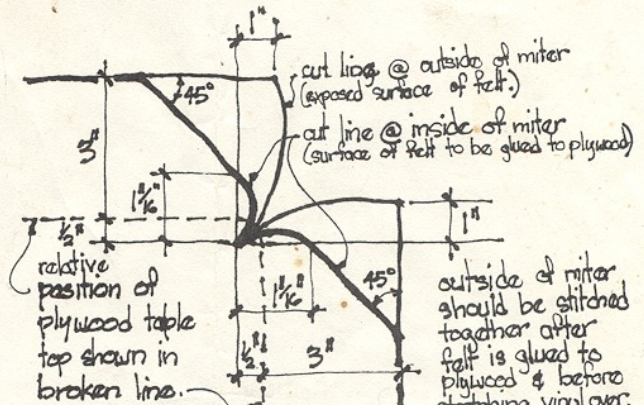 1"
cut line @ outside of miter
(exposed surface of felt.)
45°
cut line @ inside of miter
(surface of felt to be glued to plywood)
3"
1 11/16"
1/2"
1"
relative
position of
plywood table
top shown in
broken line.
1 11/16"
45°
1/2"
3"
outside of miter
should be stitched
together after
felt is glued to
plywood & before
vinyl over